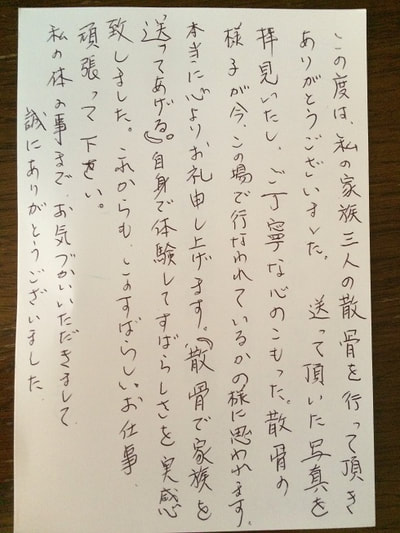 この度は、私の家族三人の散骨を行って頂き
ありがとうございました。　送って頂いた写真を
拝見いたし、ご丁寧な心のこもった。散骨の
様子が今、この場で行なわれているかの様に思われます。
本当に心よりお礼申し上げます。（散骨で家族を
送ってあげる。）自身で体験してすばらしさを実感
致しました。これからも、このすばらしいお仕事
頑張って下さい。
私の体の事まで、お気づかいいただきまして
誠にありがとうございました